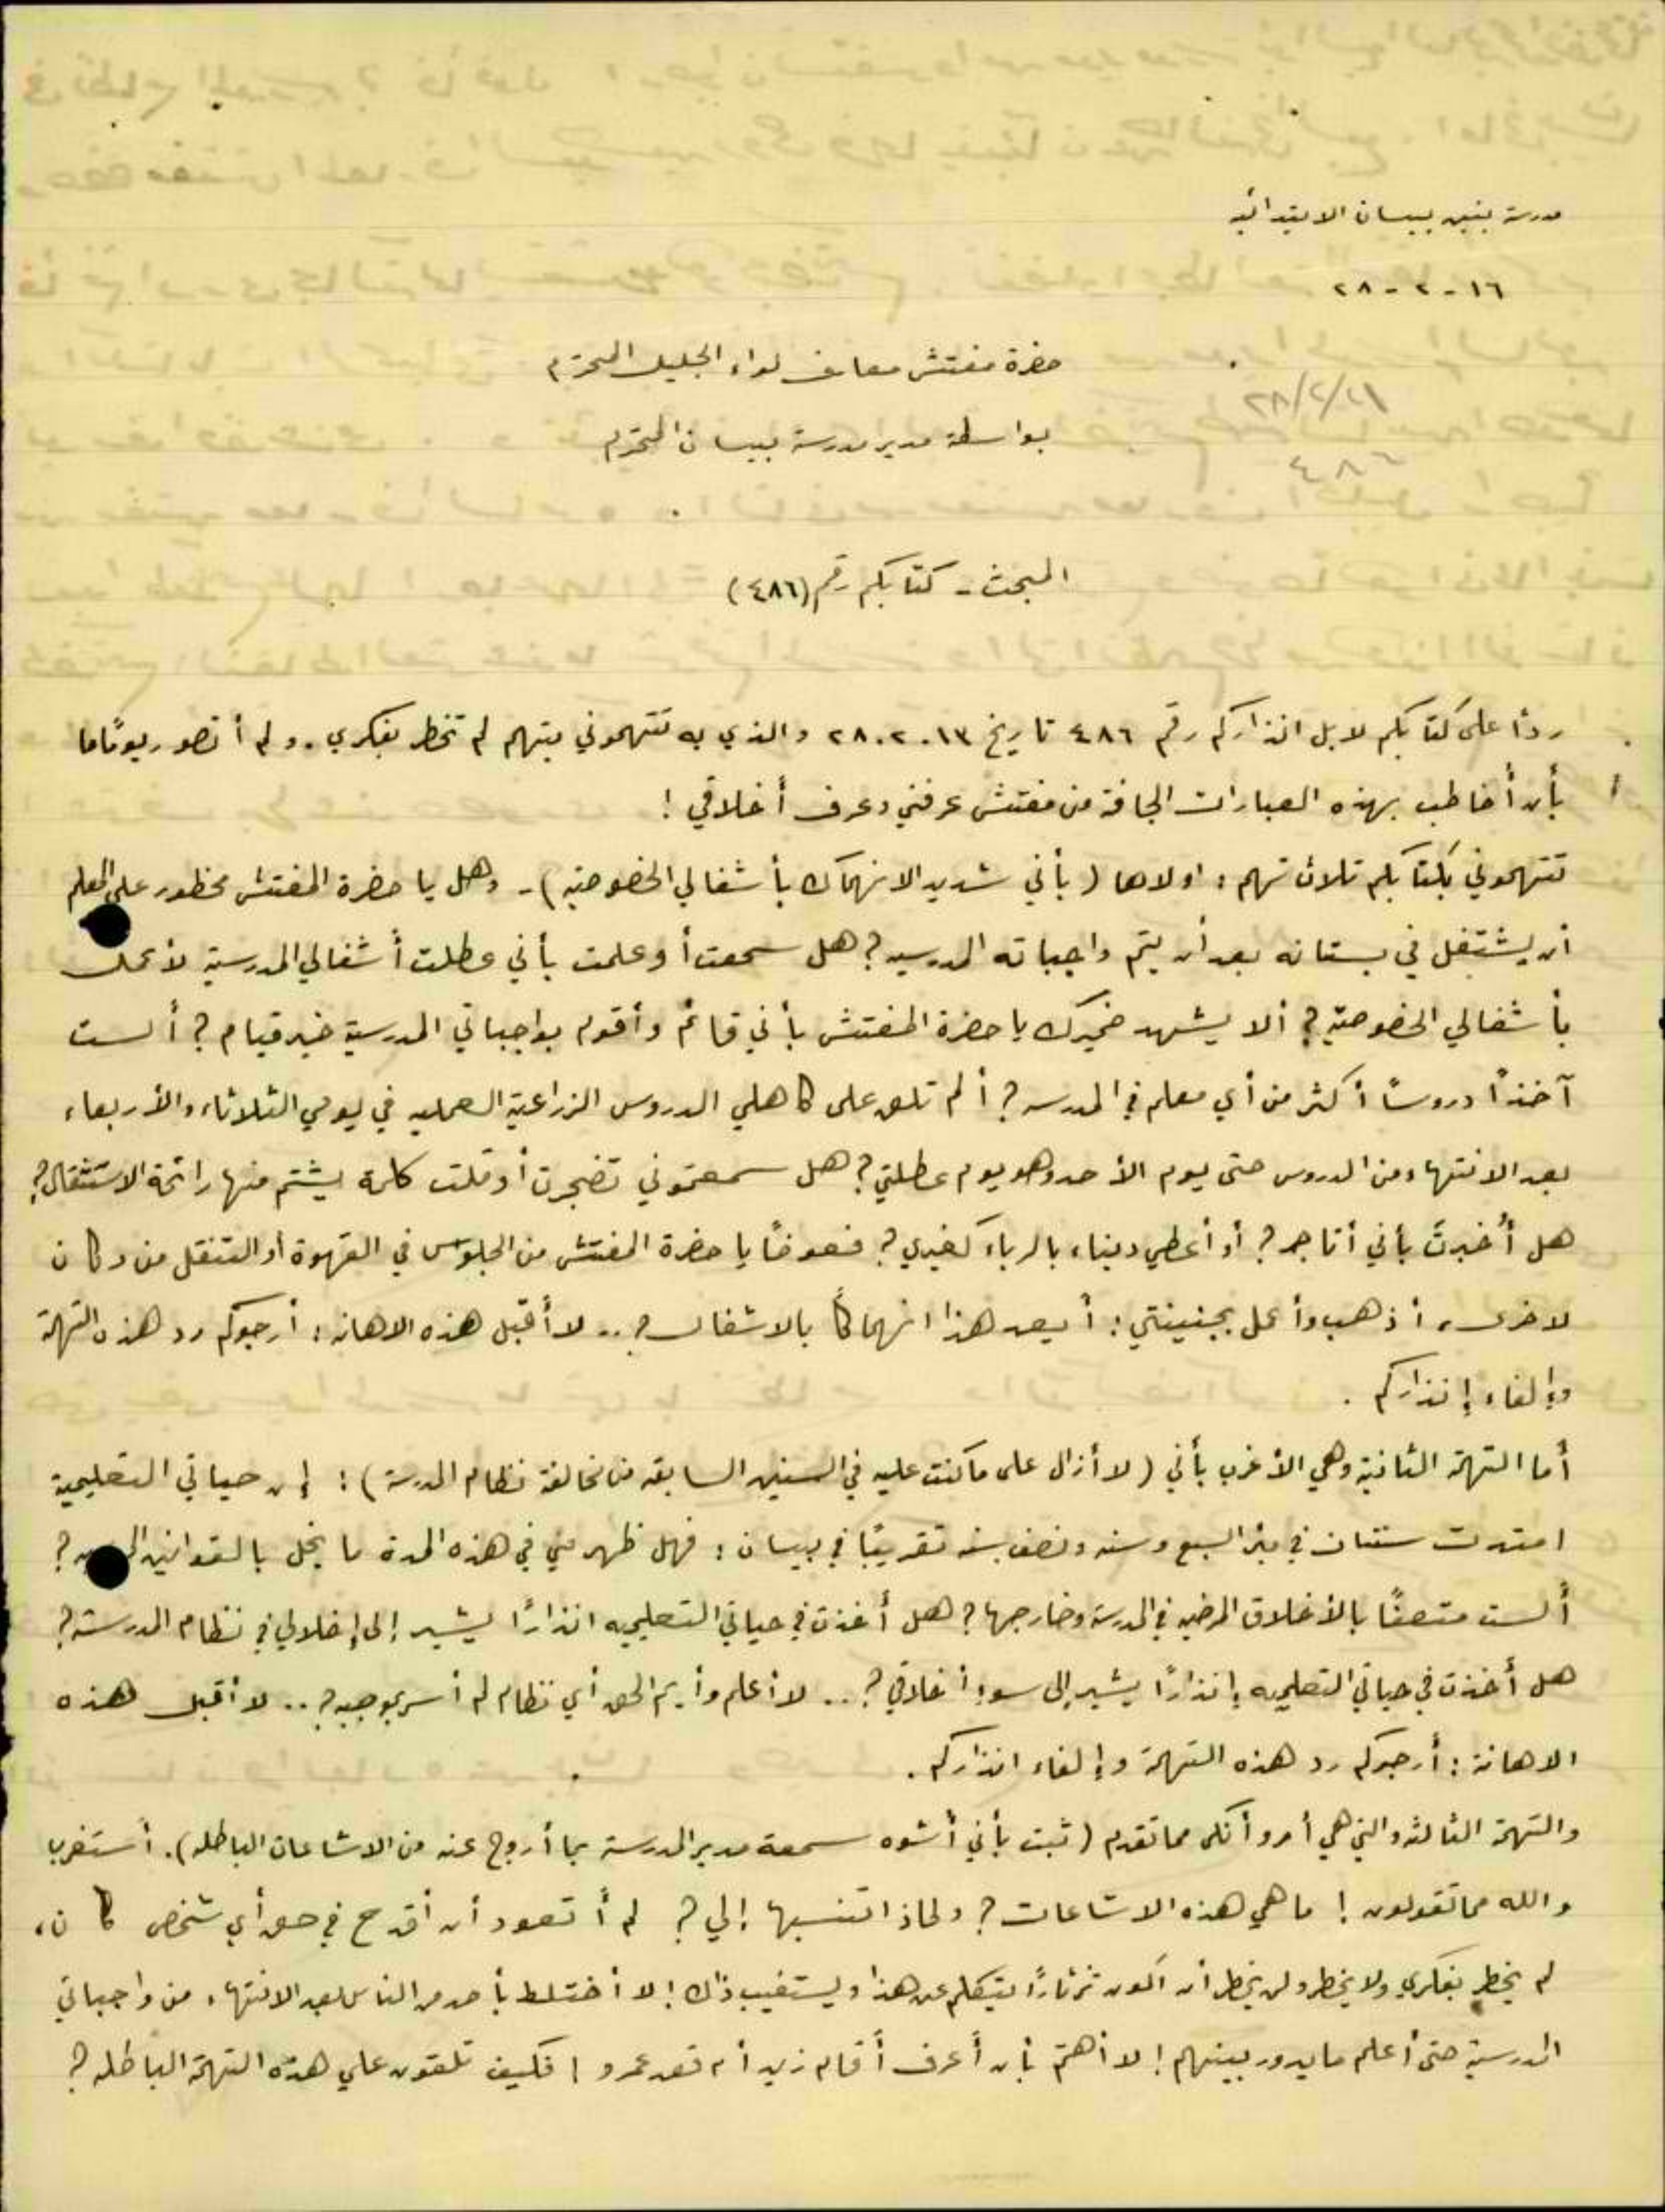 مدرسة بنين بيسان الابتدائيه
١٦ - ٢ - ٢٨
حضرة مفتش معارف لواء الجليل المحترم
٢٨/٢/
بواسطة مدير مدرسة بيسان المحترم
المبحث - كتابكم رقم (٤٨٦)
ردًا على كتابكم لا بل انذاركم رقم ٤٨٦ تاريخ ١٣ . ٢ . ٢٨ والذي به تتهموني بتهم لم تخطر بفكري . ولم أتصور يومًا ما
بأن أُخاطب بهذه العبارات الجافة من مفتش عرفني وعرف أخلاقي !
تتهموني بكتابكم ثلاث تهم : اولاها ( بأني شديد الانهماك بأشغالي الخصوصيه ) - وهل يا حضرة المفتش محظور على المعلم
أن يشتغل في بستانه بعد أن يتم واجباته المدرسيه ؟ هل سمعت أو علمت بأني عطلت أشغالي المدرسية لأعمل
بأشغالي الخصوصيّه ؟ ألا يشهد ضميرك يا حضرة المفتش بأني قائم وأقوم بواجباتي المدرسية خير قيام ؟ ألست
آخذًا دروسًا أكثر من أي معلم في المدرسه ؟ ألم تلق على كاهلي الدروس الزراعية العمليه في يومي الثلاثاء والأربعاء
بعد الانتهاء من الدروس حتى يوم الأحد وهو يوم عطلتي ؟ هل سمعتموني تضجرت أو قلت كلمة يشتم منها رائحة الاستثقال ؟
هل أُخبرتَ بأني أتاجر ؟ أو أعطي ديناء بالرباء كغيري ؟ فعوضًا يا حضرة المفتش من الجلوس في القهوة أو التنقل من دكان
لاخرى ، أذهب وأعمل بجنينتي : أيعد هذا انهماكًا بالاشغال ؟ .. لا أقبل هذه الاهانه : أرجوكم رد هذه التهمة
وإلغاء إنذاركم .
أما التهمة الثانية وهي الأغرب بأني ( لا أزال على ما كنت عليه في السنين السابقه من مخالفة نظام المدرسة ) : إن حياتي التعليمية
امتدت سنتان في بئر السبع وسنه ونصف سنه تقريبًا في بيسان : فهل ظهر مني في هذه المدة ما يخل بالقوانين ؟
ألست متصفًا بالأخلاق المرضيه في المدرسة وخارجها ؟ هل أخذت في حياتي التعليميه انذارًا يشير إلى إخلالي في نظام المدرسة ؟
هل أخذت في حياتي التعليميه إنذارًا يشير إلى سوء أخلاقي ؟ .. لا أعلم وأيم الحق أي نظام لم أسر بموجبه ؟ .. لا أقبل هذه
الاهانة : أرجوكم رد هذه التهمة وإلغاء انذاركم .
والتهمة الثالثه والتي هي أمر وأنكى مما تقدم ( ثبت بأني أشوه سمعة مدير المدرسة بما أروج عنه من الاشاعات الباطله ) . أستغرب
والله مما تقولون ! ما هي هذه الاشاعات ؟ ولماذا تنسبها إلي ؟ لم أتعود أن أقدح في حق أي شخص كان ،
لم يخطر بفكري ولا يخطر ولن يخطر أن اكون ثرثارًا يتكلم عن هذا ويستغيب ذاك ! لا أختلط بأحد من الناس بعد الانتهاء من واجباتي
المدرسية حتى أعلم ما يدور بينهم ! لا أهتم بأن أعرف أقام زيد أم قعد عمرو ! فكيف تلقون علي هذه التهمة الباطله ؟